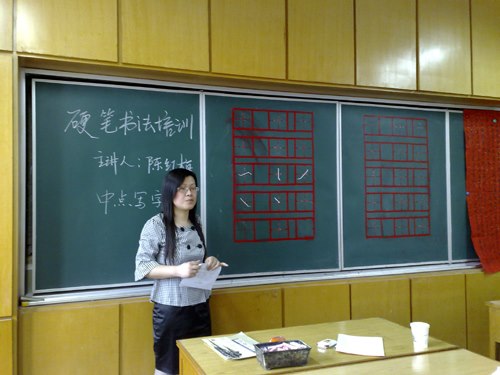 硬笔书法培训
主讲人：陈红梅
中点写字